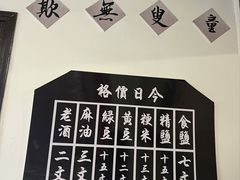 童叟無欺
今日價格
食鹽 七文
精鹽 十五文
粳米 十二文
黃豆 十二文
綠豆 十五文
麻油 三文
老酒 二文